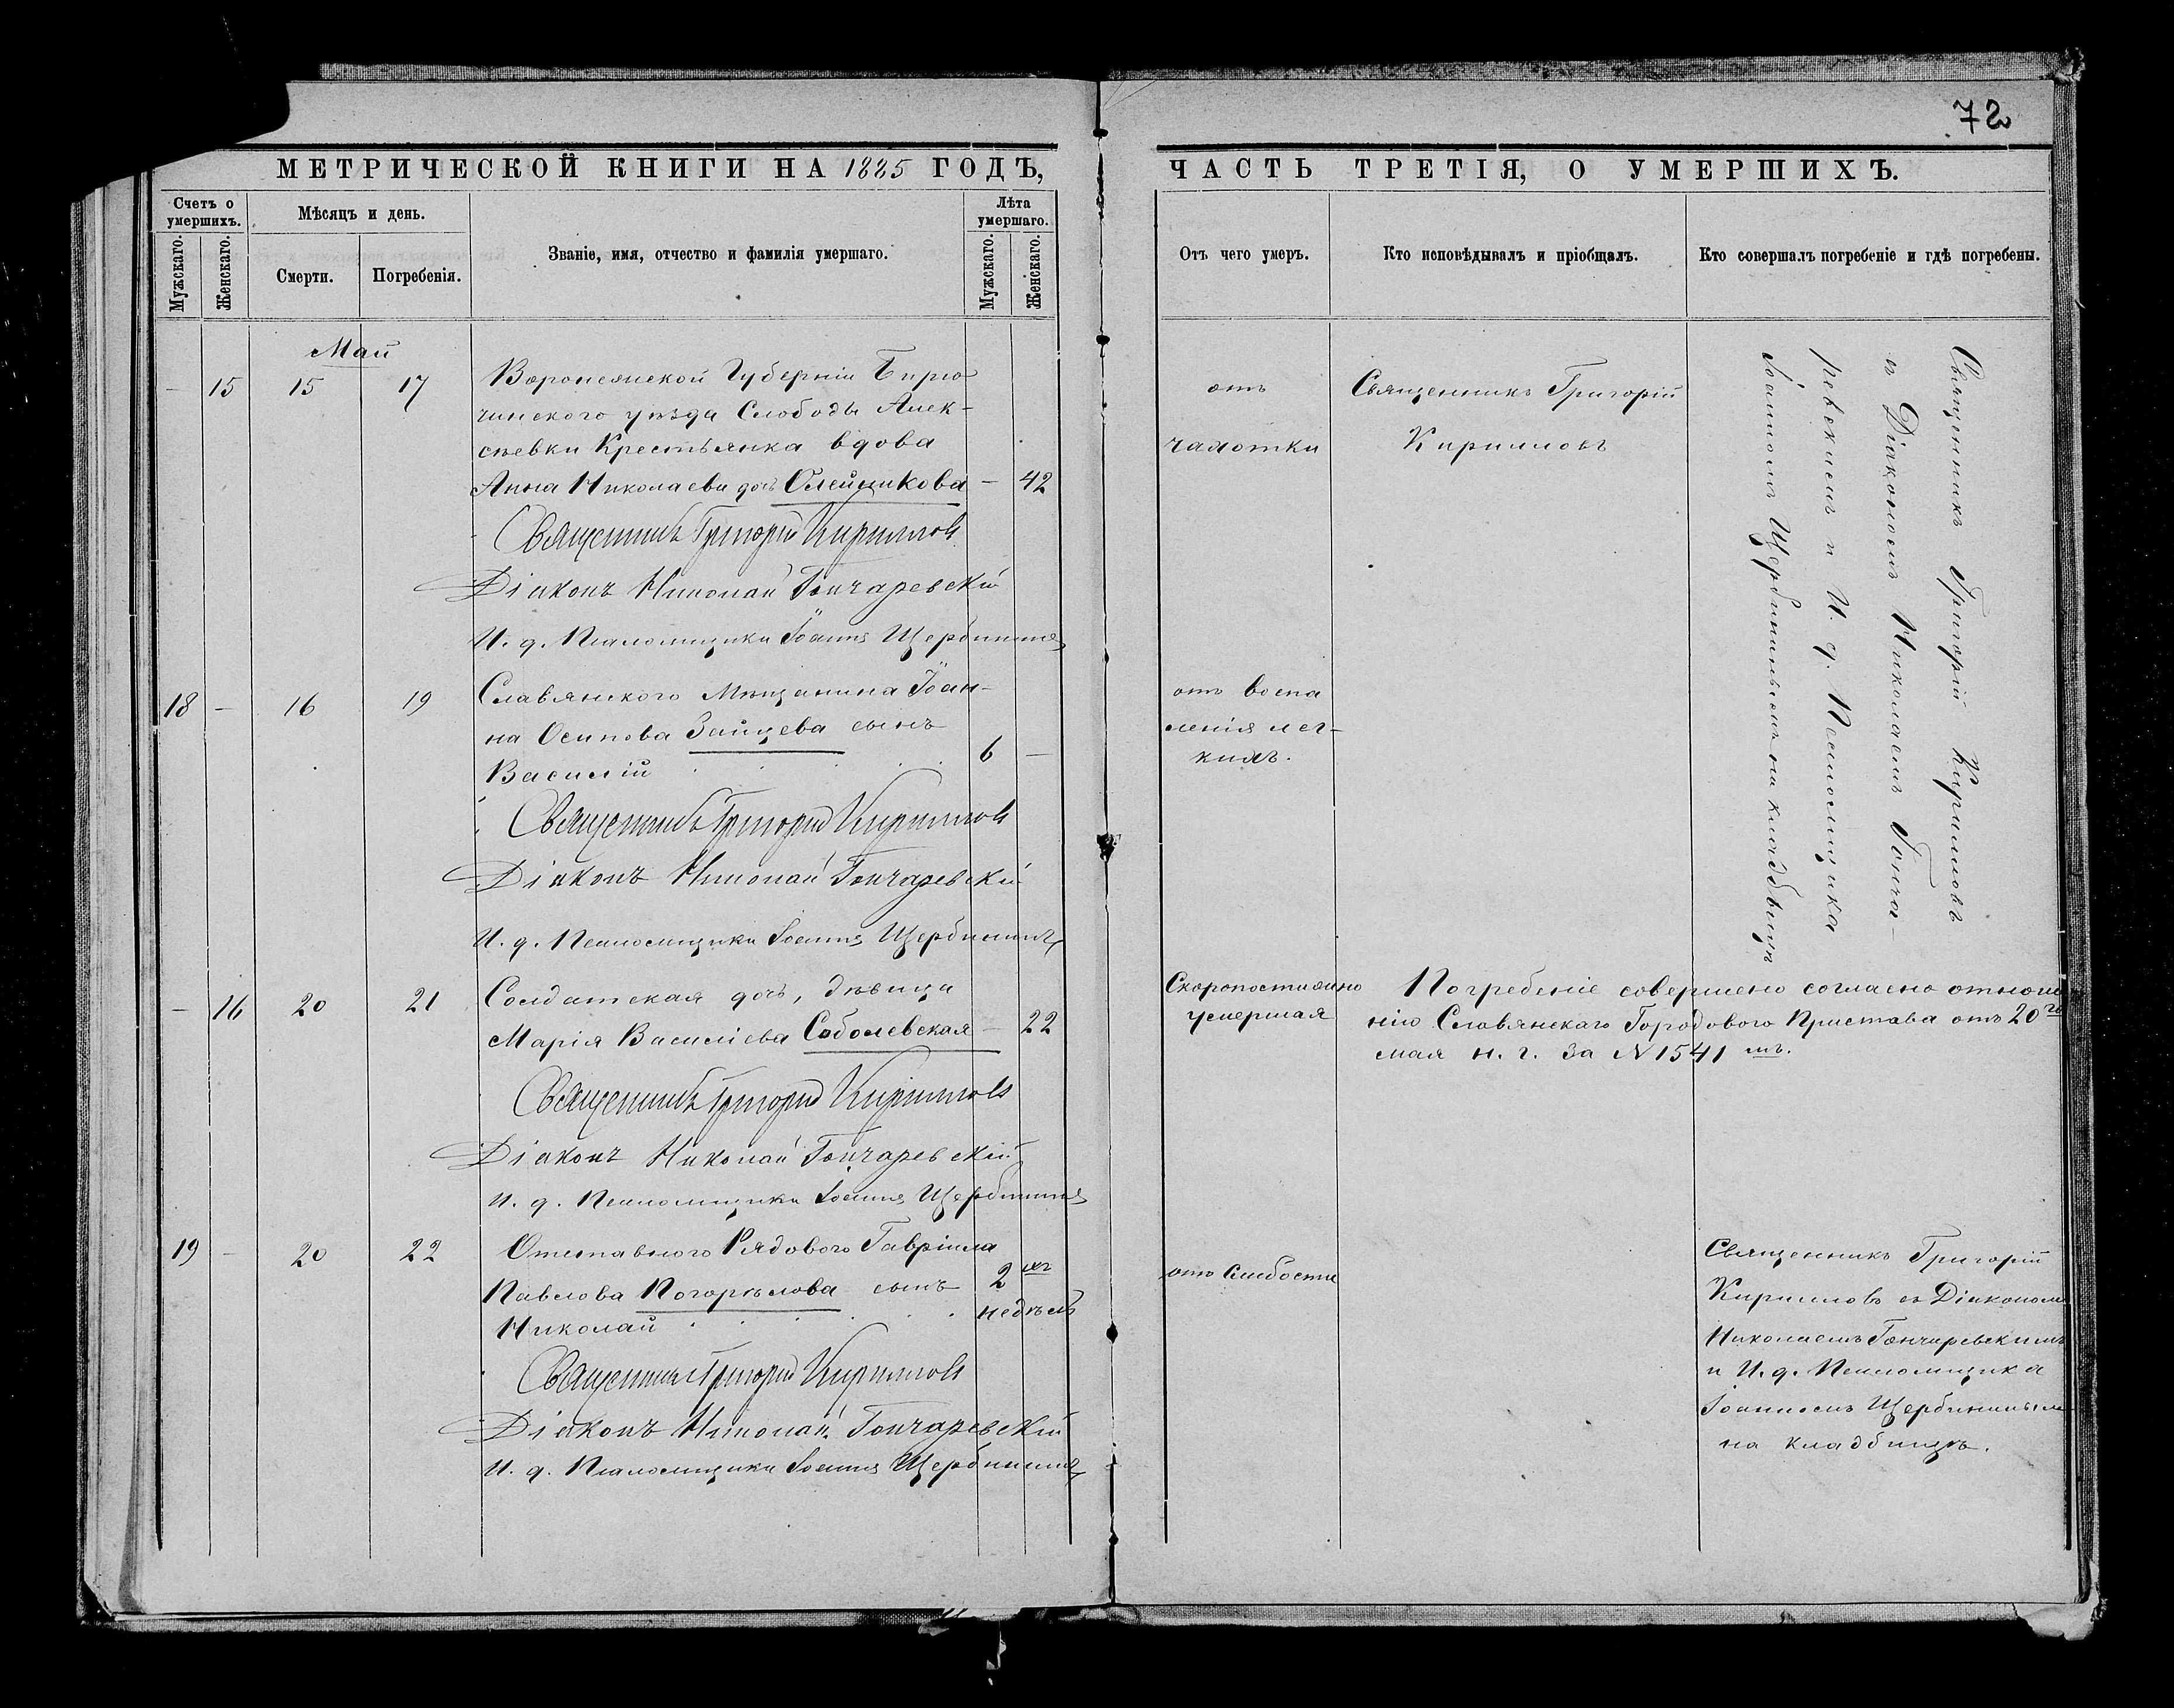 72
МЕТРИЧЕСКОЙ КНИГИ НА 1885 ГОДЪ,
Счетъ о умершихъ.
Мужскаго.
Женскаго.
Мѣсяцъ и день.
Смерти.
Погребенія.
Званіе, имя, отчество и фамилія умершаго.
Лѣта умершаго.
Мужскаго.
Женскаго.
Май
— 15 15 17 Воронежской Губерніи Бирю-
чинского уѣзда Слободы Алек-
сѣевки Крестьянка вдова
Анна Николаева дочь Олейникова — 42
Священникъ Григорій Кирилловъ
Діаконъ Николай Гончаревскій
И. д. Псаломщика Іоаннъ Щербининъ
18 — 16 19 Славянского Мѣщанина Іоан-
на Осипова Зайцева сынъ
Василій 6 —
Священникъ Григорій Кирилловъ
Діаконъ Николай Гончаревскій
И. д. Псаломщика Іоаннъ Щербининъ
— 16 20 21 Солдатская дочь, дѣвица
Марія Василіева Соболевская — 22
Священникъ Григорій Кирилловъ
Діаконъ Николай Гончаревскій
И. д. Псаломщика Іоаннъ Щербининъ
19 — 20 22 Отставного Рядового Гавріила
Павлова Погорѣлова сынъ 2хъ
Николай недѣль
Священникъ Григорій Кирилловъ
Діаконъ Николай Гончаревскій
И. д. Псаломщика Іоаннъ Щербининъ
ЧАСТЬ ТРЕТІЯ, О УМЕРШИХЪ.
Отъ чего умеръ.
Кто исповѣдывалъ и пріобщалъ.
Кто совершалъ погребеніе и гдѣ погребены.
отъ
чахотки
Священникъ Григорій
Кирилловъ
Священникъ Григорій Кирилловъ
съ Діакономъ Николаемъ Гонча-
ревскимъ и И. д. Псаломщика
Іоанномъ Щербининымъ на кладбищѣ
отъ воспа
ленія лег-
кихъ.
Скоропостижно
умершая
Погребеніе совершено согласно отноше
нію Славянскаго Городового Пристава отъ 20го
мая н. г. за N 1541 мъ.
отъ слабости
Священникъ Григорій
Кирилловъ съ Діакономъ
Николаемъ Гончаревскимъ
и И. д. Псаломщика
Іоанномъ Щербининымъ
на кладбищѣ.